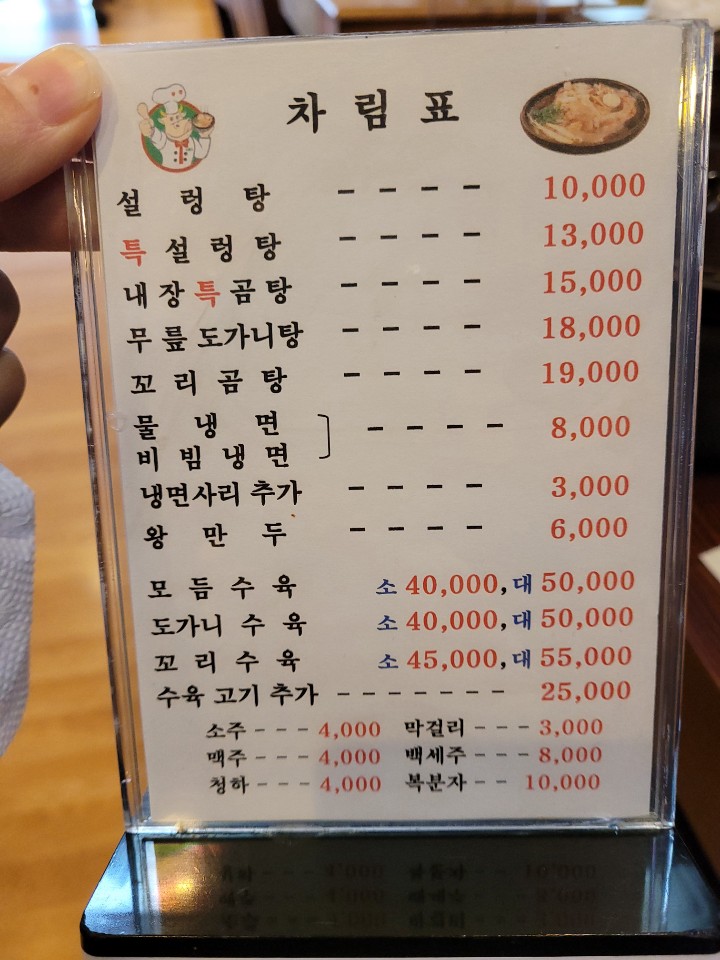 차림표
설렁탕 ---- 10,000
특설렁탕 ---- 13,000
내장특곰탕 ---- 15,000
무릎도가니탕 ---- 18,000
꼬리곰탕 ---- 19,000
물냉면
비빔냉면 ---- 8,000
냉면사리 추가 ---- 3,000
왕만두 ---- 6,000
모듬수육 소 40,000, 대 50,000
도가니수육 소 40,000, 대 50,000
꼬리수육 소 45,000, 대 55,000
수육 고기 추가 ------- 25,000
소주 --- 4,000 막걸리 --- 3,000
맥주 --- 4,000 백세주 --- 8,000
청하 --- 4,000 복분자 -- 10,000